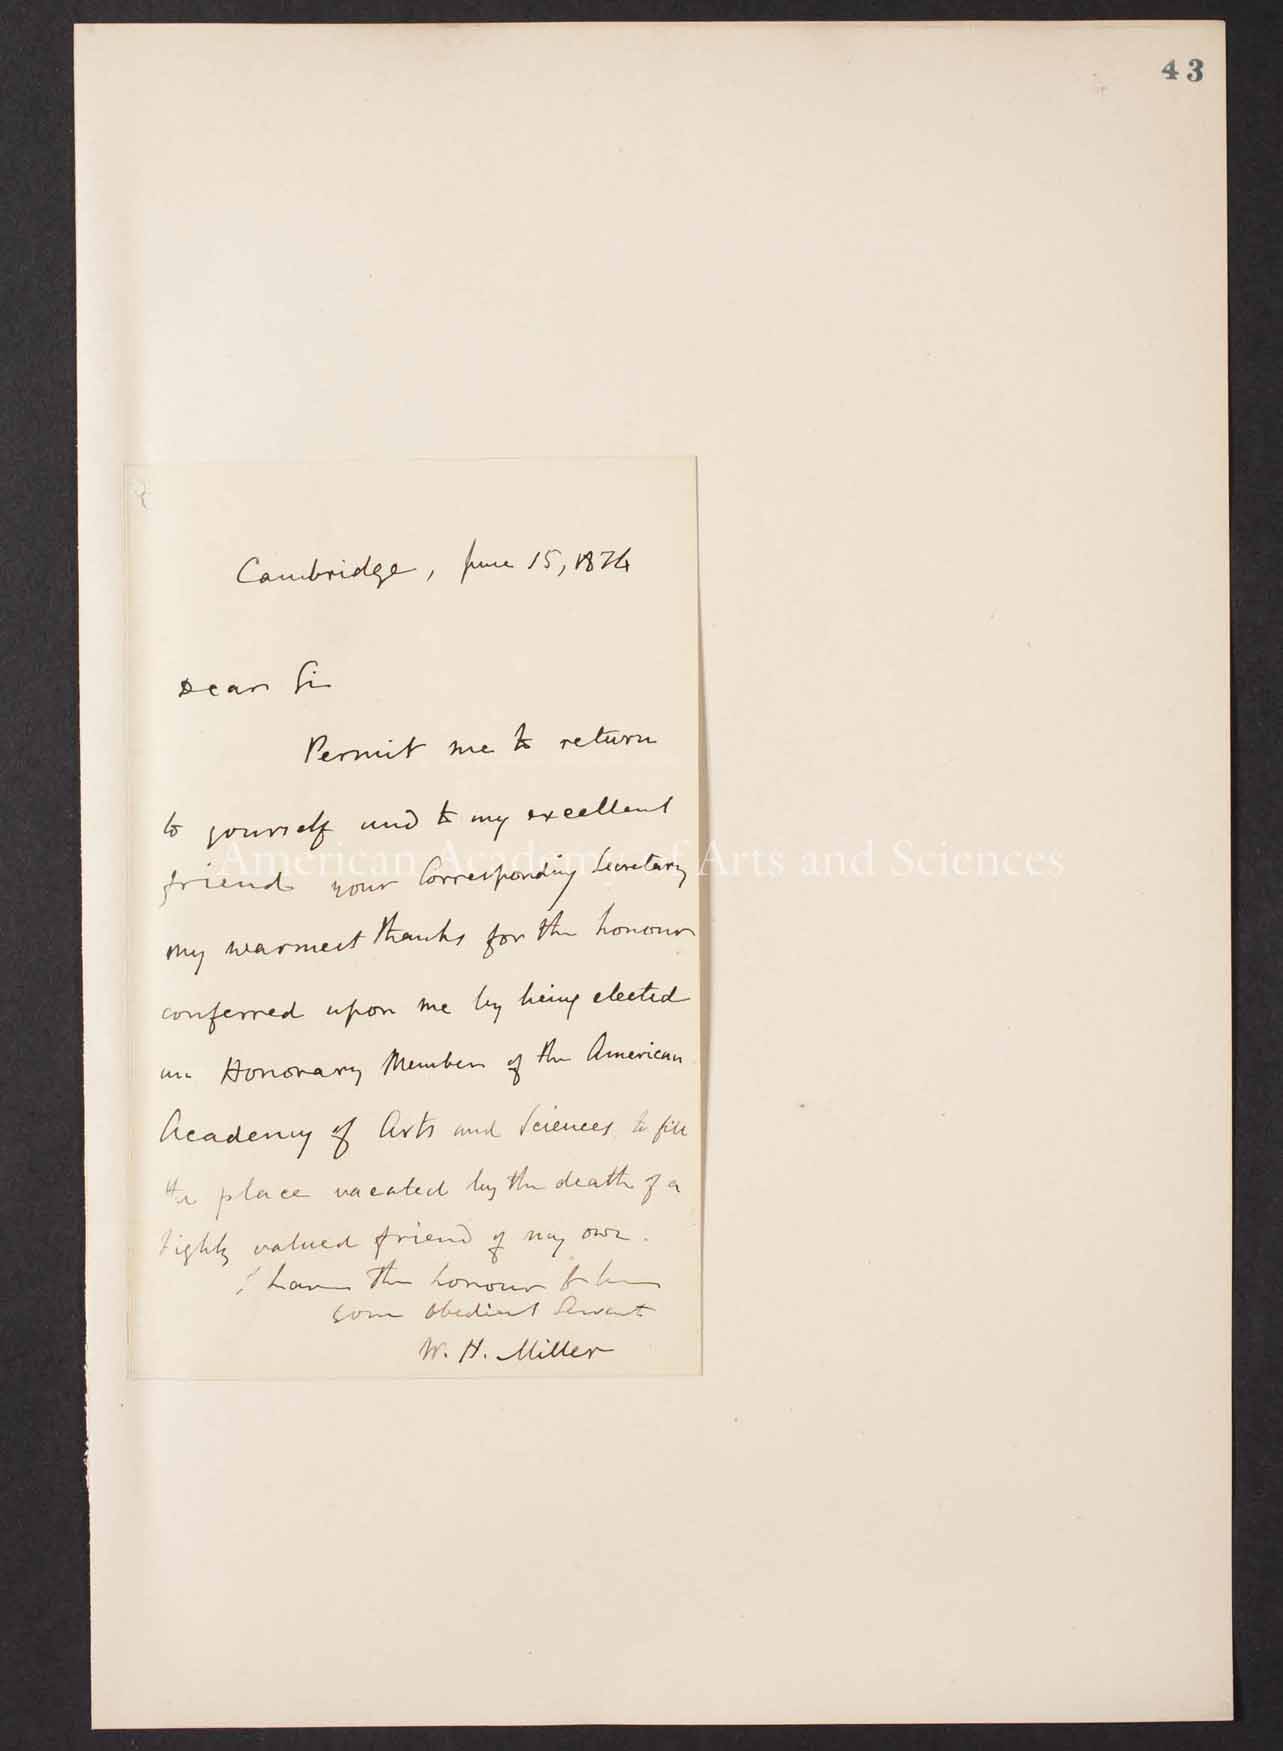 43
Cambridge, June 15, 1874
Dear Sir
Permit me to return
to yourself and to my excellent
friend your Corresponding Secretary
my warmest thanks for the honour
conferred upon me by being elected
an Honorary Member of the American
Academy of Arts and Sciences to fill
the place vacated by the death of a
highly valued friend of my own.
I have the honour to be
your obedient Servant
W. H. Miller
American Academy of Arts and Sciences